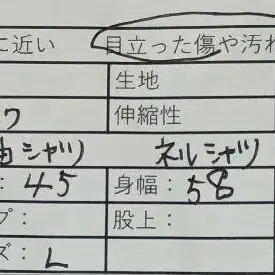 に近い 目立った傷や汚れ
生地
ク 伸縮性
袖シャツ ネルシャツ
: 45 身幅: 58
プ: 股上:
ズ: L